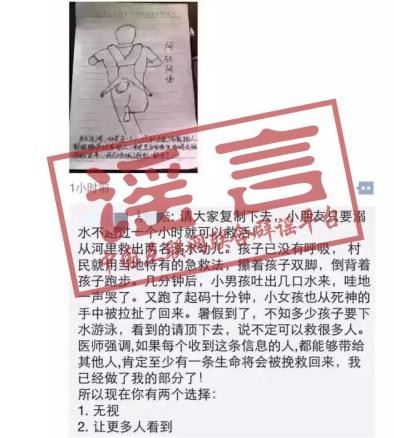 阿强陪涛
1小时前
谣言
中国互联网联合辟谣平台
请大家复制下去,小朋友只要溺
水不超过一个小时就可以救活,
从河里救出两名溺水幼儿。孩子已没有呼吸,村
民就用当地特有的急救法,攥着孩子双脚,倒背着
孩子跑步。几分钟后,小男孩吐出几口水来,哇地
一声哭了。又跑了起码十分钟,小女孩也从死神的
手中被拉扯了回来。暑假到了,不知多少孩子要下
水游泳,看到的请顶下去,说不定可以救很多人。
医师强调,如果每个收到这条信息的人,都能够带给
其他人,肯定至少有一条生命将会被挽救回来,我
已经做了我的部分了!
所以现在你有两个选择:
1. 无视
2. 让更多人看到